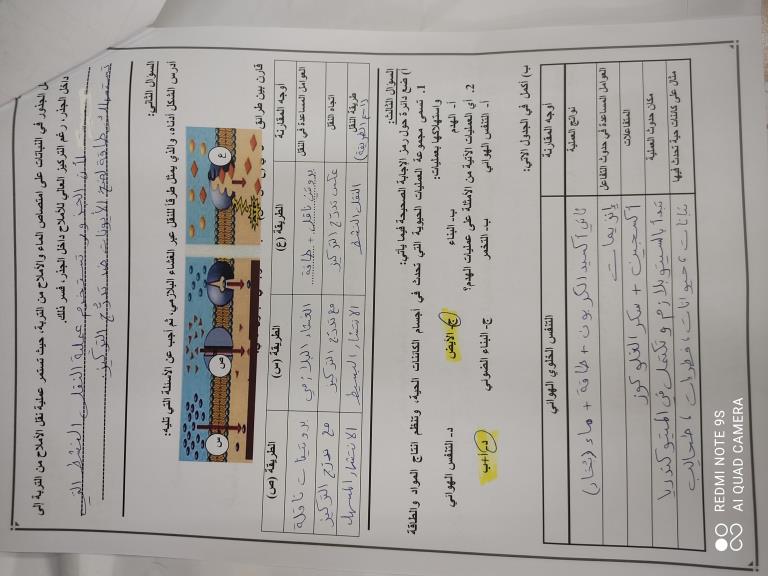 ل الجذور في النباتات على امتصاص الماء والأملاح من التربة، حيث تستمر عملية نقل الأملاح من التربة إلى
داخل الجذر، رغم التركيز العالي للأملاح داخل الجذر، فسر ذلك.
لأن الجذور تستخدم عملية النقل النشط التي
تستهلك طاقة لضخ الأيونات ضد تدرج التركيز
السؤال الثاني:
ادرس الشكل أدناه، والذي يمثل طرقاً للنقل عبر الغشاء البلازمي، ثم أجب عن الأسئلة التي تليه:
ع
ص
س
قارن بين طرائق
أوجه المقارنة
الطريقة (ع)
الطريقة (س)
الطريقة (ص)
العوامل المساعدة في النقل
بروتين ناقل + طاقة
الغشاء البلازمي
بروتينات ناقلة
اتجاه النقل
عكس تدرج التركيز
مع تدرج التركيز
مع تدرج التركيز
طريقة النقل
(اسم الطريقة)
النقل النشط
الانتشار البسيط
الانتشار المسهل
السؤال الثالث:
أ) ضع دائرة حول رمز الإجابة الصحيحة فيما يأتي:
1. تسمى مجموعة العمليات الحيوية التي تحدث في أجسام الكائنات الحية، وتنظم انتاج المواد والطاقة
واستهلاكها بعمليات:
أ- الهدم
ب- البناء
ج- الأيض
د- التنفس الهوائي
2. أي العمليات الآتية من الأمثلة على عمليات الهدم؟
أ- التنفس الهوائي
ب- التخمر
ج- البناء الضوئي
د- أ+ب
ب) أكمل في الجدول الآتي:
أوجه المقارنة
التنفس الخلوي الهوائي
نواتج العملية
ثاني أكسيد الكربون + طاقة + ماء (بخار)
العوامل المساعدة في حدوث التفاعل
إنزيمات
المتفاعلات
أكسجين + سكر الغلوكوز
مكان حدوث العملية
تبدأ بالسيتوبلازم وتكتمل في الميتوكندريا
مثال على كائنات حية تحدث فيها
نباتات، حيوانات، فطريات، طحالب
REDMI NOTE 9S
AI QUAD CAMERA